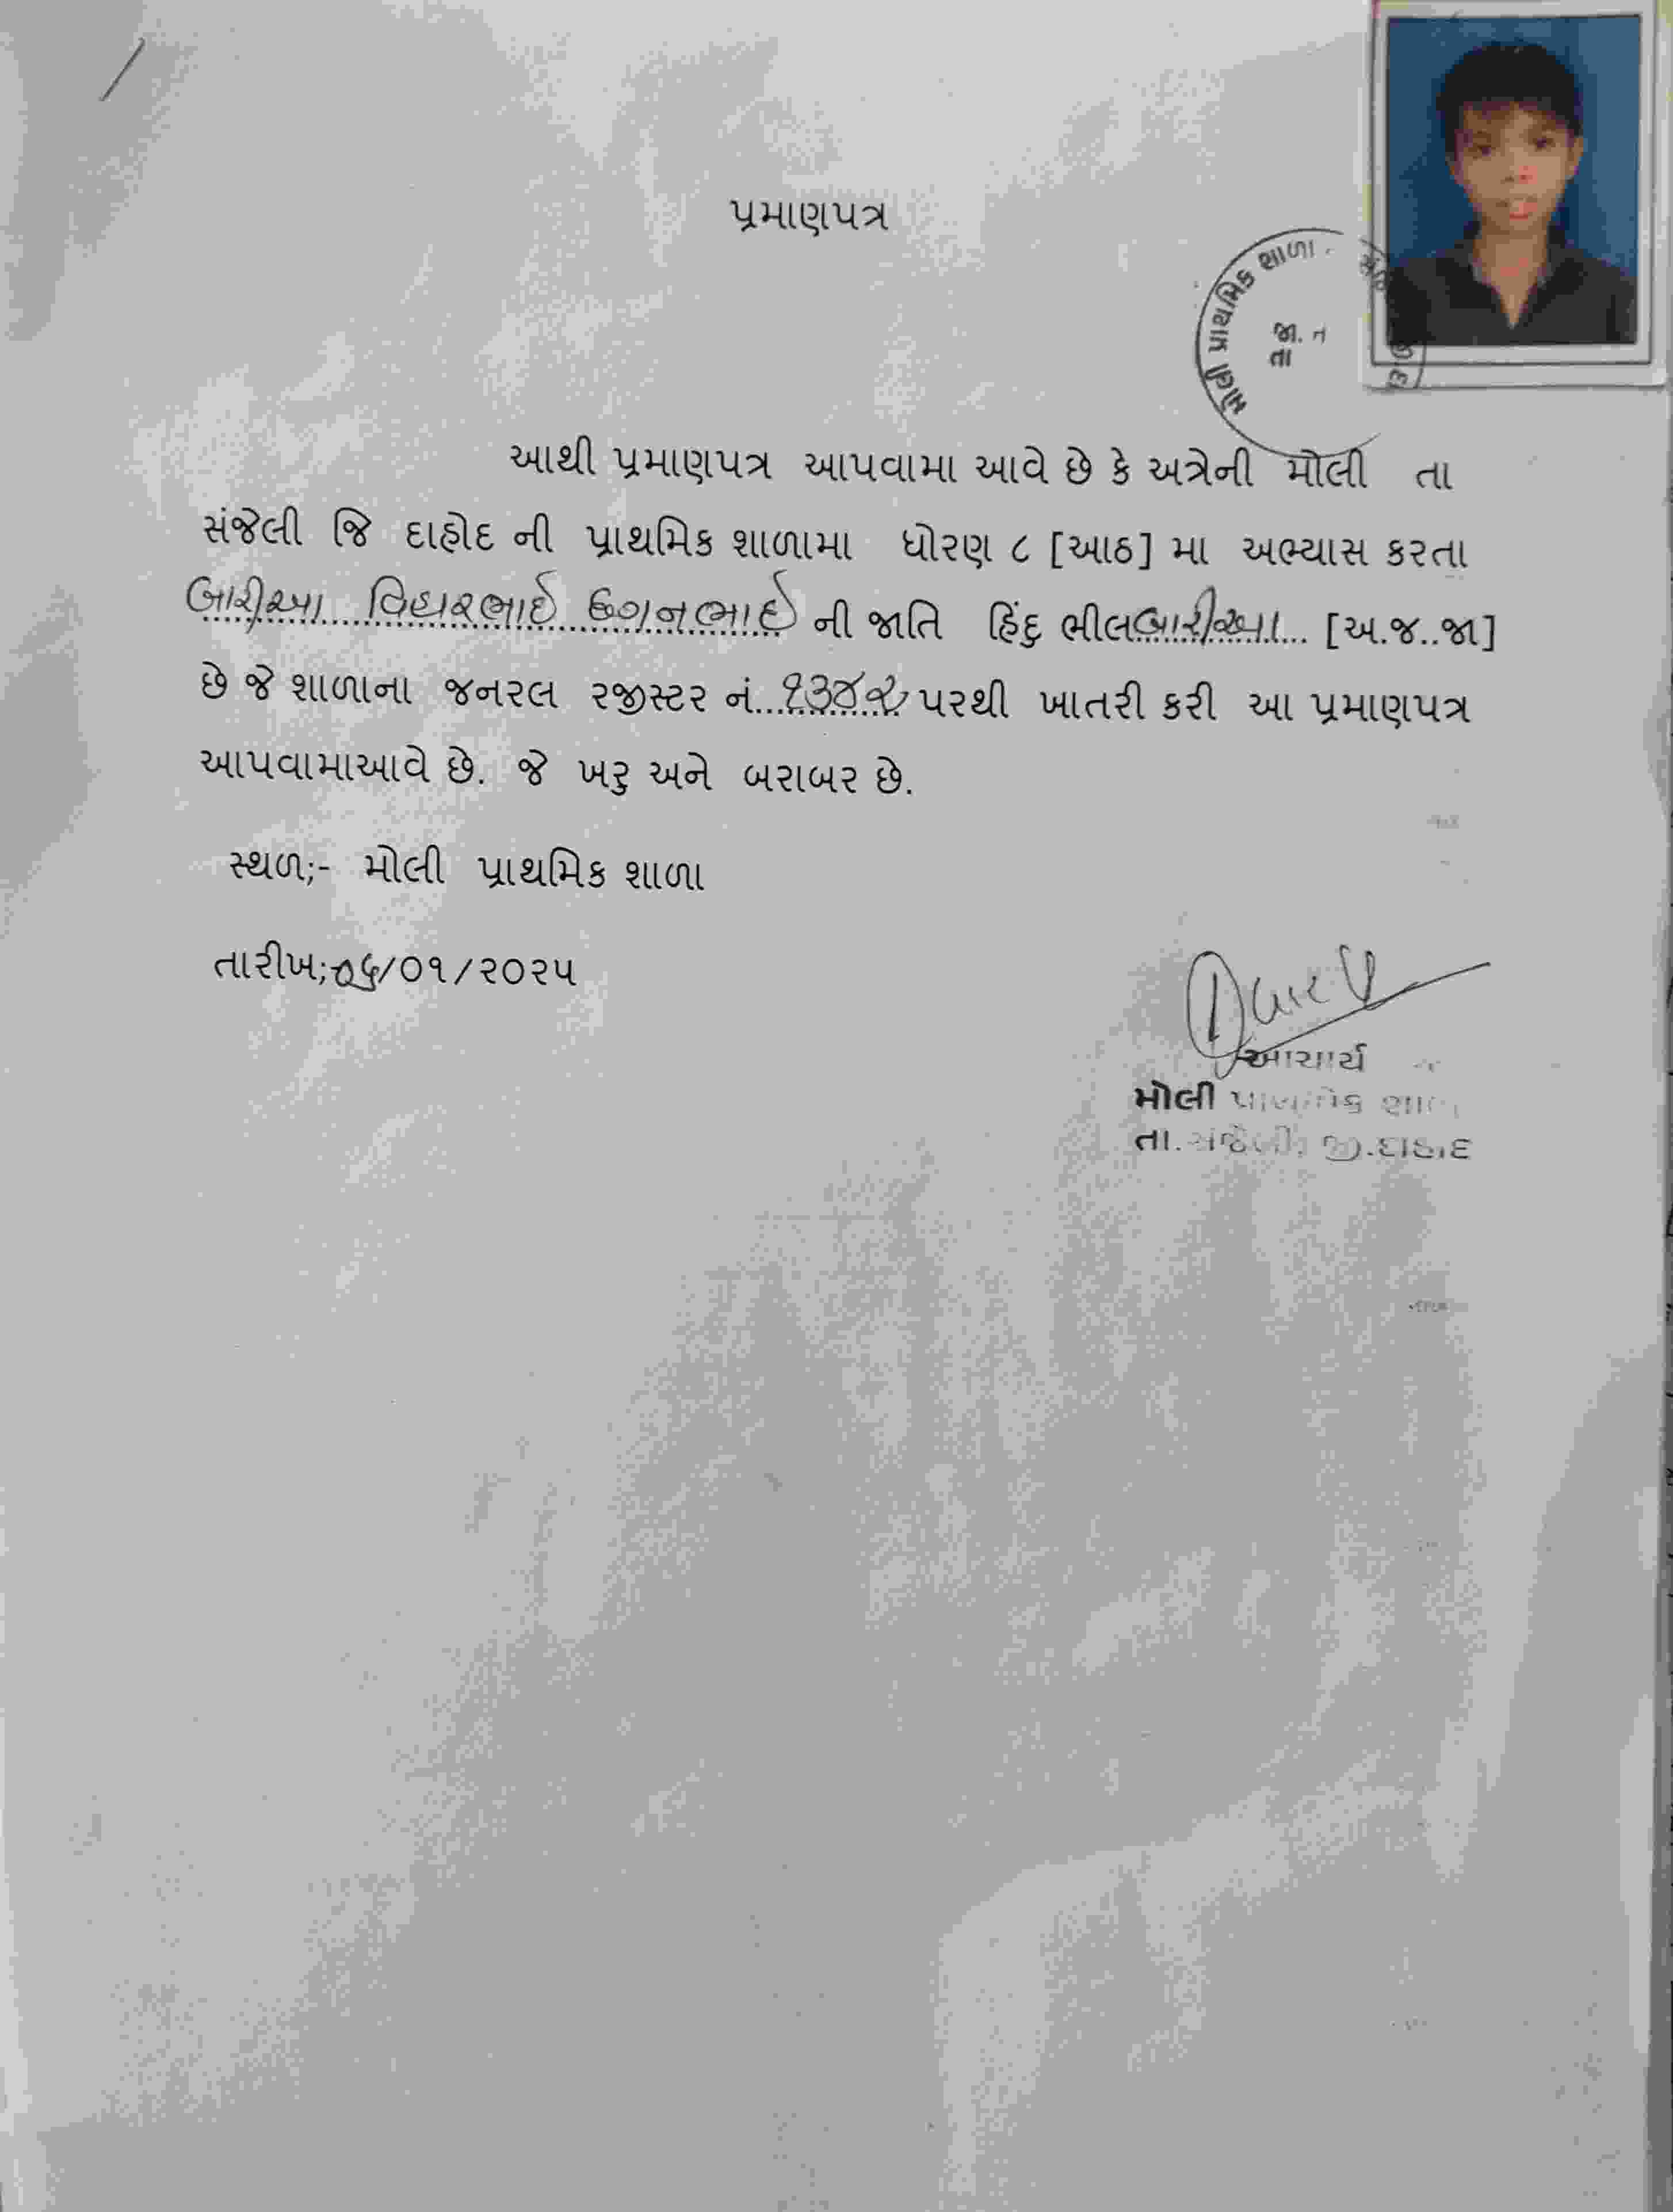 પ્રમાણપત્ર
મોલી પ્રાથમિક શાળા
જા. ન
તા
આથી પ્રમાણપત્ર આપવામા આવે છે કે અત્રેની મોલી તા
સંજેલી જિ દાહોદ ની પ્રાથમિક શાળામા ધોરણ ૮ [આઠ] મા અભ્યાસ કરતા
બારીઆ વિહારભાઈ છગનભાઈ ની જાતિ હિંદુ ભીલ બારીઆ... [અ.જ..જા]
છે જે શાળાના જનરલ રજીસ્ટર નં...૧૩૪૨ પરથી ખાતરી કરી આ પ્રમાણપત્ર
આપવામાઆવે છે. જે ખરુ અને બરાબર છે.
સ્થળ;- મોલી પ્રાથમિક શાળા
તારીખ;-૦૬/૦૧/૨૦૨૫
આચાર્ય
મોલી પ્રાથમિક શાળા
તા.સંજેલી, જી.દાહોદ